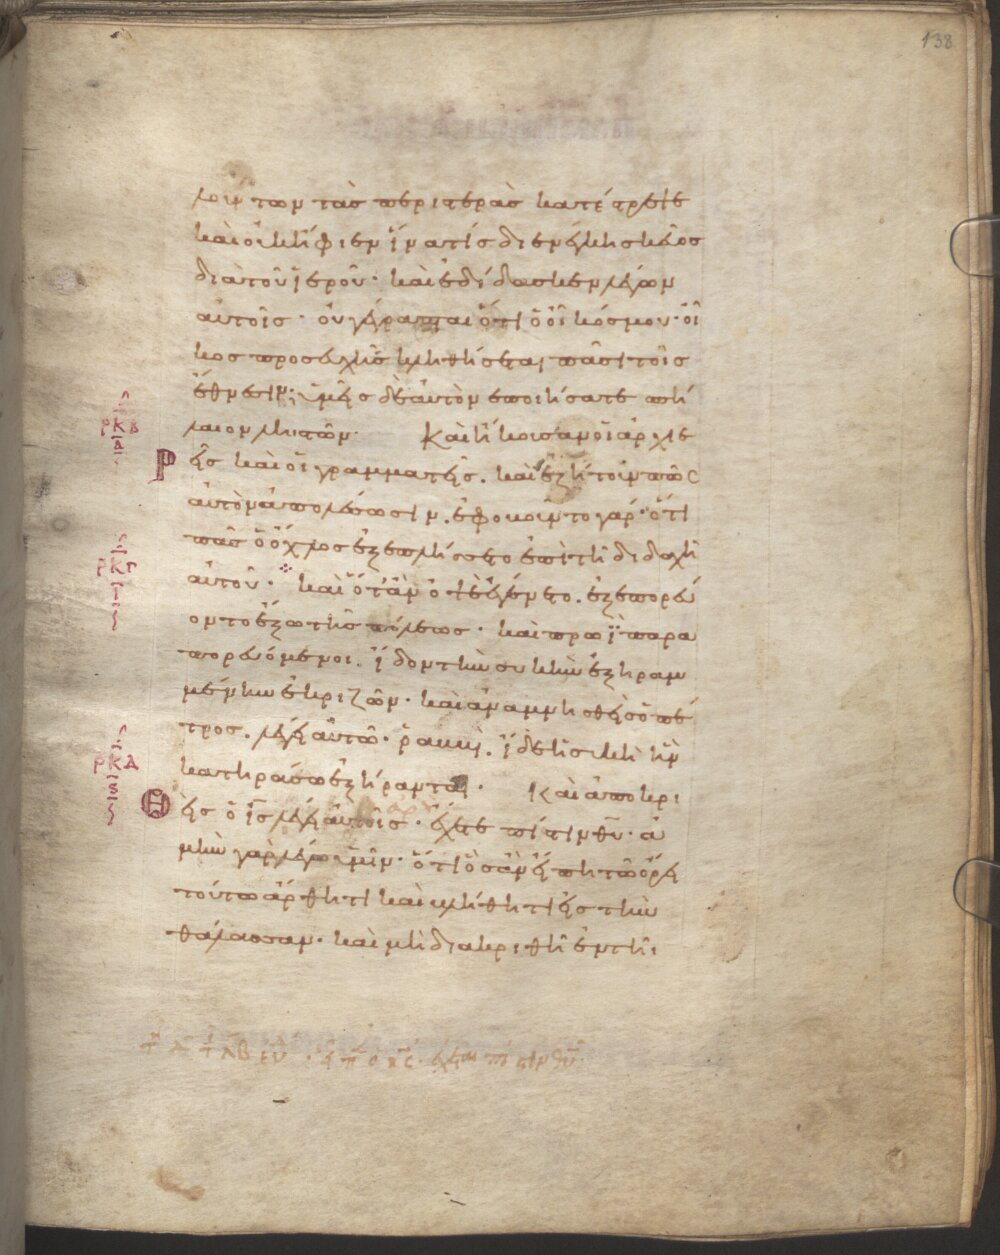 138
λουντων τὰς περιστερὰς κατέστρεψε
καὶ οὐκ ἤφιεν ἵνα τίς διενέγκη σκεῦος
διὰ τοῦ ἱεροῦ· καὶ ἐδίδασκεν λέγων
αὐτοῖς· οὐ γέγραπται ὅτι ὁ οἶκός μου· οἶ
κος προσευχῆς κληθήσεται πᾶσι τοῖς
ἔθνεσιν; ὑμεῖς δὲ αὐτὸν ἐποιήσατε σπή
λαιον ληστῶν· Καὶ ἤκουσαν οἱ ἀρχιε
ρκβ
α
ρεῖς καὶ οἱ γραμματεῖς. καὶ ἐζήτουν πῶς
αὐτὸν ἀπολέσωσιν. ἐφοβοῦντο γάρ· ὅτι
πᾶς ὁ ὄχλος ἐξεπλήσσετο ἐπὶ τῆ διδαχῆ
ρκγ
αὐτοῦ· καὶ ὅταν ὀψὲ ἐγένετο. ἐξεπορεύ
οντο ἔξω τῆς πόλεως· καὶ πρωῒ παρα
πορευόμενοι. ἴδον τὴν συκῆν ἐξηραμ
μένην ἐκ ριζῶν· καὶ ἀναμνησθεὶς ὁ πέ
τρος. λέγει αὐτῶ· ῥαββὶ. ἴδε ἡ συκῆ ἣν
ρκδ
κατηράσω ἐξήρανται· Καὶ ἀποκρι
θεὶς ὁ ις λέγει αὐτοῖς· ἔχετε πίστιν θυ· ἀ
μὴν γὰρ λέγω ὑμῖν· ὅτι ὃς ἂν εἴπη τῶ ὄρει
τούτω ἄρθητι καὶ βλήθητι εἰς τὴν
θάλασσαν· καὶ μὴ διακριθῆ ἐν τῆι